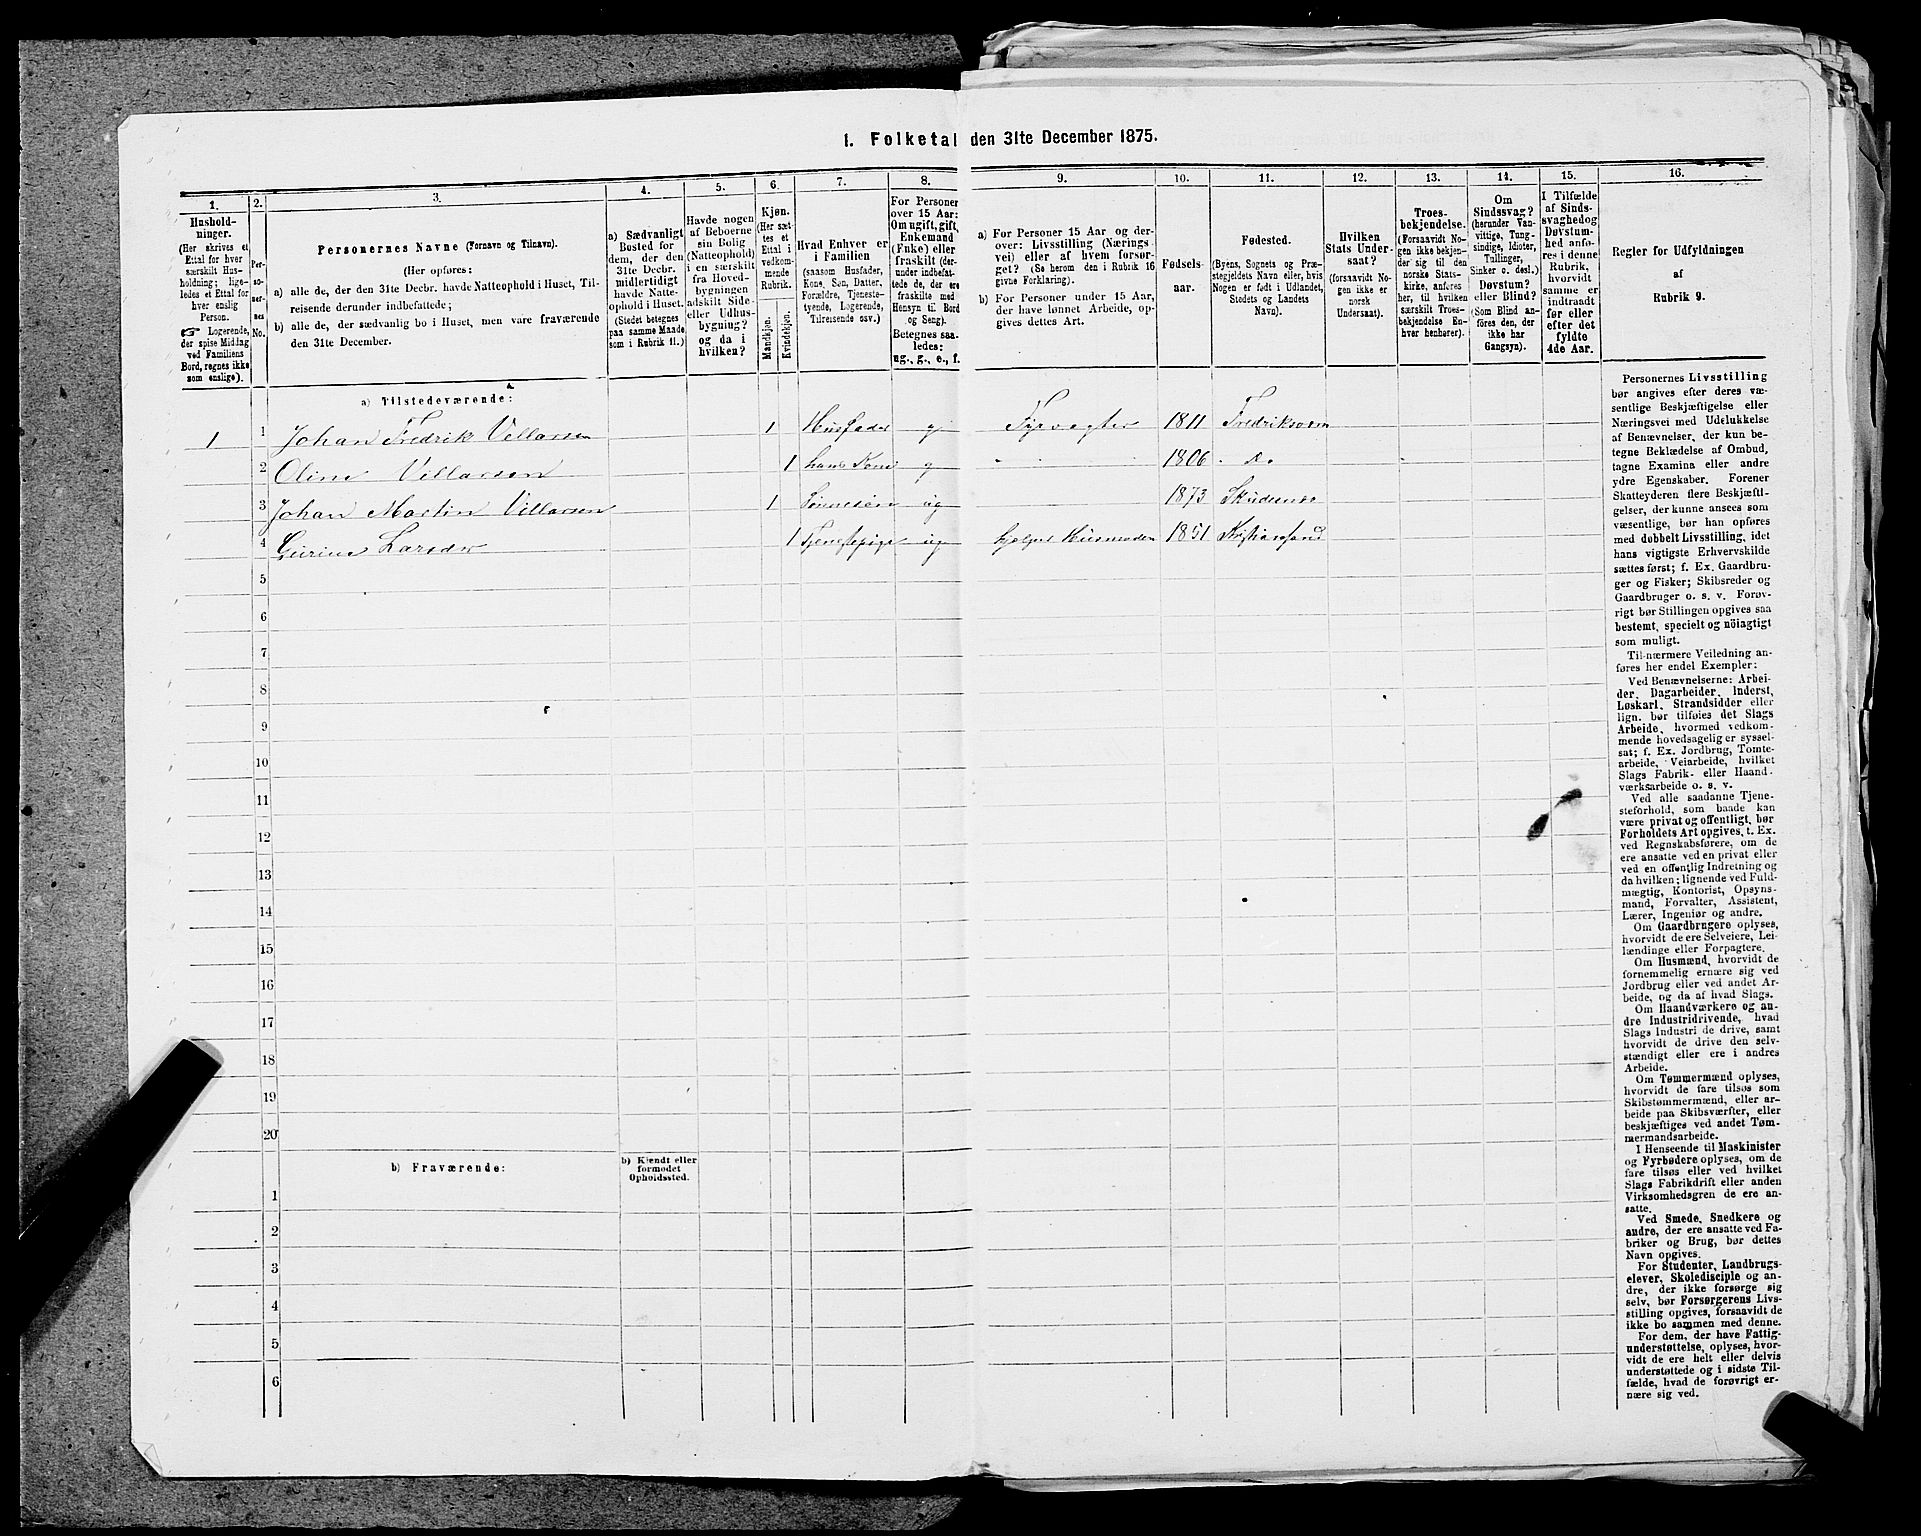 1. Folketal den 31te December 1875.
1. 2. 3. 4. 5. 6. 7. 8. 9. 10. 11. 12. 13. 14. 15. 16.
Hushold-
ninger.
(Her skrives et
Ettal for hver
særskilt Hus-
holdning; lige-
ledes et Ettal for
hver enslig
Person.
☞ Logerende,
der spise Middag
ved Familiens
Bord, regnes ikke
som enslige).
Per-
so-
ner-
nes
No.
Personernes Navne (Fornavn og Tilnavn).
(Her opføres:
a) alle de, der den 31te Decbr. havde Natteophold i Huset, Til-
reisende derunder indbefattede;
b) alle de, der sædvanlig bo i Huset, men vare fraværende
den 31te December.
a) Sædvanligt
Bosted for
dem, der den
31te Decbr.
midlertidigt
havde Natte-
ophold i Huset.
(Stedet betegnes
paa samme Maade
som i Rubrik 11.)
Havde nogen
af Beboerne
sin Bolig
(Natteophold)
i en særskilt
fra Hoved-
bygningen
adskilt Side-
eller Udhus-
bygning?
og da i
hvilken?
Kjøn.
(Her sæt-
tes et
Ettal i
vedkom-
mende
Rubrik.
Mandkjøn.
Kvindekjøn.
Hvad Enhver er
i Familien
(saasom Husfader,
Kone, Søn, Datter,
Forældre, Tjeneste-
tyende, Logerende,
Tilreisende osv.)
For Personer
over 15 Aar:
Om ugift, gift,
Enkemand
(Enke) eller
fraskilt (der-
under indbefat-
tede de, der ere
fraskilte med
Hensyn til Bord
og Seng).
Betegnes saa-
ledes:
ug., g., e., f.
a) For Personer 15 Aar og der-
over: Livsstilling (Nærings-
vei) eller af hvem forsør-
get? (Se herom den i Rubrik 16
givne Forklaring).
b) For Personer under 15 Aar,
der have lønnet Arbeide, op-
gives dettes Art.
Fødsels-
aar.
Fødested.
(Byens, Sognets og Præ-
stegjeldets Navn eller, hvis
Nogen er født i Udlandet,
Stedets og Landets
Navn).
Hvilken
Stats Under-
saat?
(forsaavidt No-
gen ikke er
norsk
Undersaat).
Troes-
bekjendelse.
(Forsaavidt No-
gen ikke bekjen-
der sig til den
norske Stats-
kirke, anføres
her, til hvilken
særskilt Troes-
bekjendelse En-
hver henhører).
Om
Sindssvag?
(herunder Van-
vittige, Tung-
sindige, Idioter,
Tullinger,
Sinker o. desl.)
Døvstum?
eller Blind?
(Som Blind an-
føres den, der
ikke har
Gangsyn).
I Tilfælde
af Sinds-
svaghed og
Døvstum-
hed anfø-
res i denne
Rubrik,
hvorvidt
samme er
indtraadt
før eller
efter det
fyldte
4de Aar.
Regler for Udfyldningen
af
Rubrik 9.
a) Tilstedeværende:
1 1 Johan Fredrik Villarsen 1 Husfader g Fyrvogter 1811 Fredriksværn
2 Oline Villarsen 1 hans Kone g 1806 Do
3 Johan Martin Villarsen 1 Sønnesøn ug 1873 Skudesnæs
4 Gurine Larsdtr 1 Tjenestepige ug hjelper Husmoderen 1851 Kristiansand
5
6
7
8
9
10
11
12
13
14
15
16
17
18
19
20
b) Fraværende:
b) Kjendt eller
formodet
Opholdssted.
1
2
3
4
5
6
Personernes Livsstilling
bør angives efter deres væ-
sentlige Beskjæftigelse eller
Næringsvei med Udelukkelse
af Benævnelser, der kun be-
tegne Beklædelse af Ombud,
tagne Examina eller andre
ydre Egenskaber. Forener
Skatteyderen flere Beskjæfti-
gelser, der kunne ansees som
væsentlige, bør han opføres
med dobbelt Livsstilling, idet
hans vigtigste Erhvervskilde
sættes først; f. Ex. Gaardbru-
ger og Fisker; Skibsreder og
Gaardbruger o. s. v. Forøv-
rigt bør Stillingen opgives saa
bestemt, specielt og nöiagtigt
som muligt.
Til nærmere Veiledning an-
føres her endel Exempler:
Ved Benævnelserne: Arbei-
der, Dagarbeider, Inderst,
Løskarl, Strandsidder eller
lign. bør tilføies det Slags
Arbeide, hvormed vedkom-
mende hovedsagelig er syssel-
sat; f. Ex. Jordbrug, Tomte-
arbeide, Veiarbeide, hvilket
Slags Fabrik- eller Haand-
værksarbeide o. s. v.
Ved alle saadanne Tjene-
steforhold, som baade kan
være privat og offentligt, bør
Forholdets Art opgives, t. Ex.
ved Regnskabsførere, om de
ere ansatte ved en privat eller
ved en offentlig Indretning og
da hvilken; lignende ved Fuld-
mægtig, Kontorist, Opsyns-
mand, Forvalter, Assistent,
Lærer, Ingeniør og andre.
Om Gaardbrugere oplyses,
hvorvidt de ere Selveiere, Lei-
lændinge eller Forpagtere.
Om Husmænd, hvorvidt de
fornemmelig ernære sig ved
Jordbrug eller ved andet Ar-
beide, og da af hvad Slags.
Om Haandværkere og an-
dre Industridrivende, hvad
Slags Industri de drive, samt
hvorvidt de drive den selv-
stændigt eller ere i andres
Arbeide.
Om Tømmermænd oplyses,
hvorvidt de fare tilsøs som
Skibstømmermænd, eller ar-
beide paa Skibsværfter, eller
beskjæftiges ved andet Tøm-
mermandsarbeide.
I Henseende til Maskinister
og Fyrbødere oplyses, om de
fare tilsøs eller ved hvilket
Slags Fabrikdrift eller anden
Virksomhedsgren de ere an-
satte.
Ved Smede, Snedkere og
andre, der ere ansatte ved Fa-
briker og Brug, bør dettes
Navn opgives.
For Studenter, Landbrugs-
elever, Skoledisciple og an-
dre, der ikke forsørge sig
selv, bør Forsørgerens Livs-
stilling opgives, forsaavidt de
ikke bo sammen med denne.
For dem, der have Fattig-
understøttelse, oplyses, hvor-
vidt de ere helt eller delvis
understøttede og i sidste Til-
fælde, hvad de forøvrigt er-
nære sig ved.